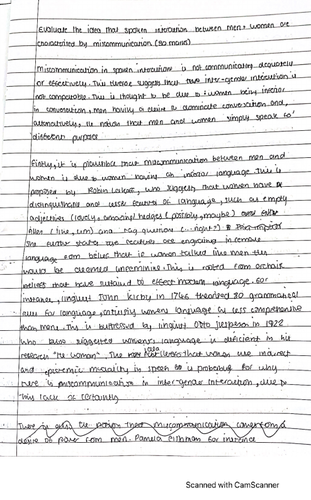 Evaluate the idea that spoken interaction between men & women are
characterised by miscommunication (30 marks)
Miscommunication in spoken interactions is not communicating adequately
or effectively. This theory suggests that inter-gender interaction is
not comparable. This is thought to be due to women being inferior
in conversation, men having a desire to dominate conversation and,
alternatively, the notion that men and women simply speak for
different purposes
Firstly, it is plausible that miscommunication between men and
women is due to women having an inferior language. This is
proposed by Robin Lakoff, who suggests that women have
distinguishing and use features of language, such as empty
adjectives (lovely, amazing) hedges (possibly, maybe)
filler (like, um) and tag questions (..right?)
She further states are engraving in female
language from beliefs that if women talked like men they
would be deemed unfeminine. This is rooted from archaic
beliefs that have sustained to effect modern language. For
instance, linguist John Kirby in 1746 theorized 80 grammatical
rules for language, satisfying womens language as less comprehensive
than men. This is witnessed by linguist Otto Jespersen in 1922
who also suggested women's language is deficient in his
research 'the woman'. The ideas that women are indirect
and epistemic modality in speech is probably for why
there is miscommunication in inter-gender interaction, due to
this lack of certainty
There is also the notion that miscommunication comes from a
desire of power from men. Pamela Fishman for instance
Scanned with CamScanner